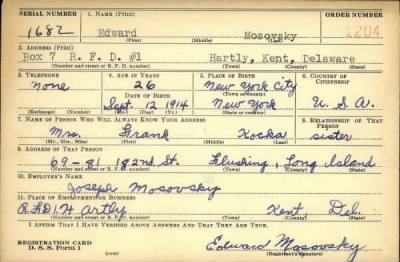 SERIAL NUMBER 1. NAME (Print) ORDER NUMBER
1682 Edward Mosovsky 1204
(First) (Middle) (Last)
2. ADDRESS (Print)
Box 7 R. F. D. #1 Hartly, Kent, Delaware
(Number and street or R. F. D. number) (Town) (County) (State)
3. TELEPHONE 4. AGE IN YEARS 5. PLACE OF BIRTH 6. COUNTRY OF CITIZENSHIP
none 26 New York City
DATE OF BIRTH (Town or county)
Sept. 12 1914 New York U. S. A.
(Exchange) (Number) (Mo.) (Day) (Yr.) (State or country)
7. NAME OF PERSON WHO WILL ALWAYS KNOW YOUR ADDRESS 8. RELATIONSHIP OF THAT PERSON
Mrs. Frank Kocka sister
(Mr., Mrs., Miss) (First) (Middle) (Last)
9. ADDRESS OF THAT PERSON
69-81 182nd St. Flushing, Long Island
(Number and street or R. F. D. number) (Town) (County) (State)
10. EMPLOYER'S NAME
Joseph Mosovsky
11. PLACE OF EMPLOYMENT OR BUSINESS
R.F.D.1. Hartly Kent Del.
(Number and street or R. F. D. number) (Town) (County) (State)
I AFFIRM THAT I HAVE VERIFIED ABOVE ANSWERS AND THAT THEY ARE TRUE.
REGISTRATION CARD
D. S. S. Form 1 (over) Edward Mosovsky
(Registrant's signature)